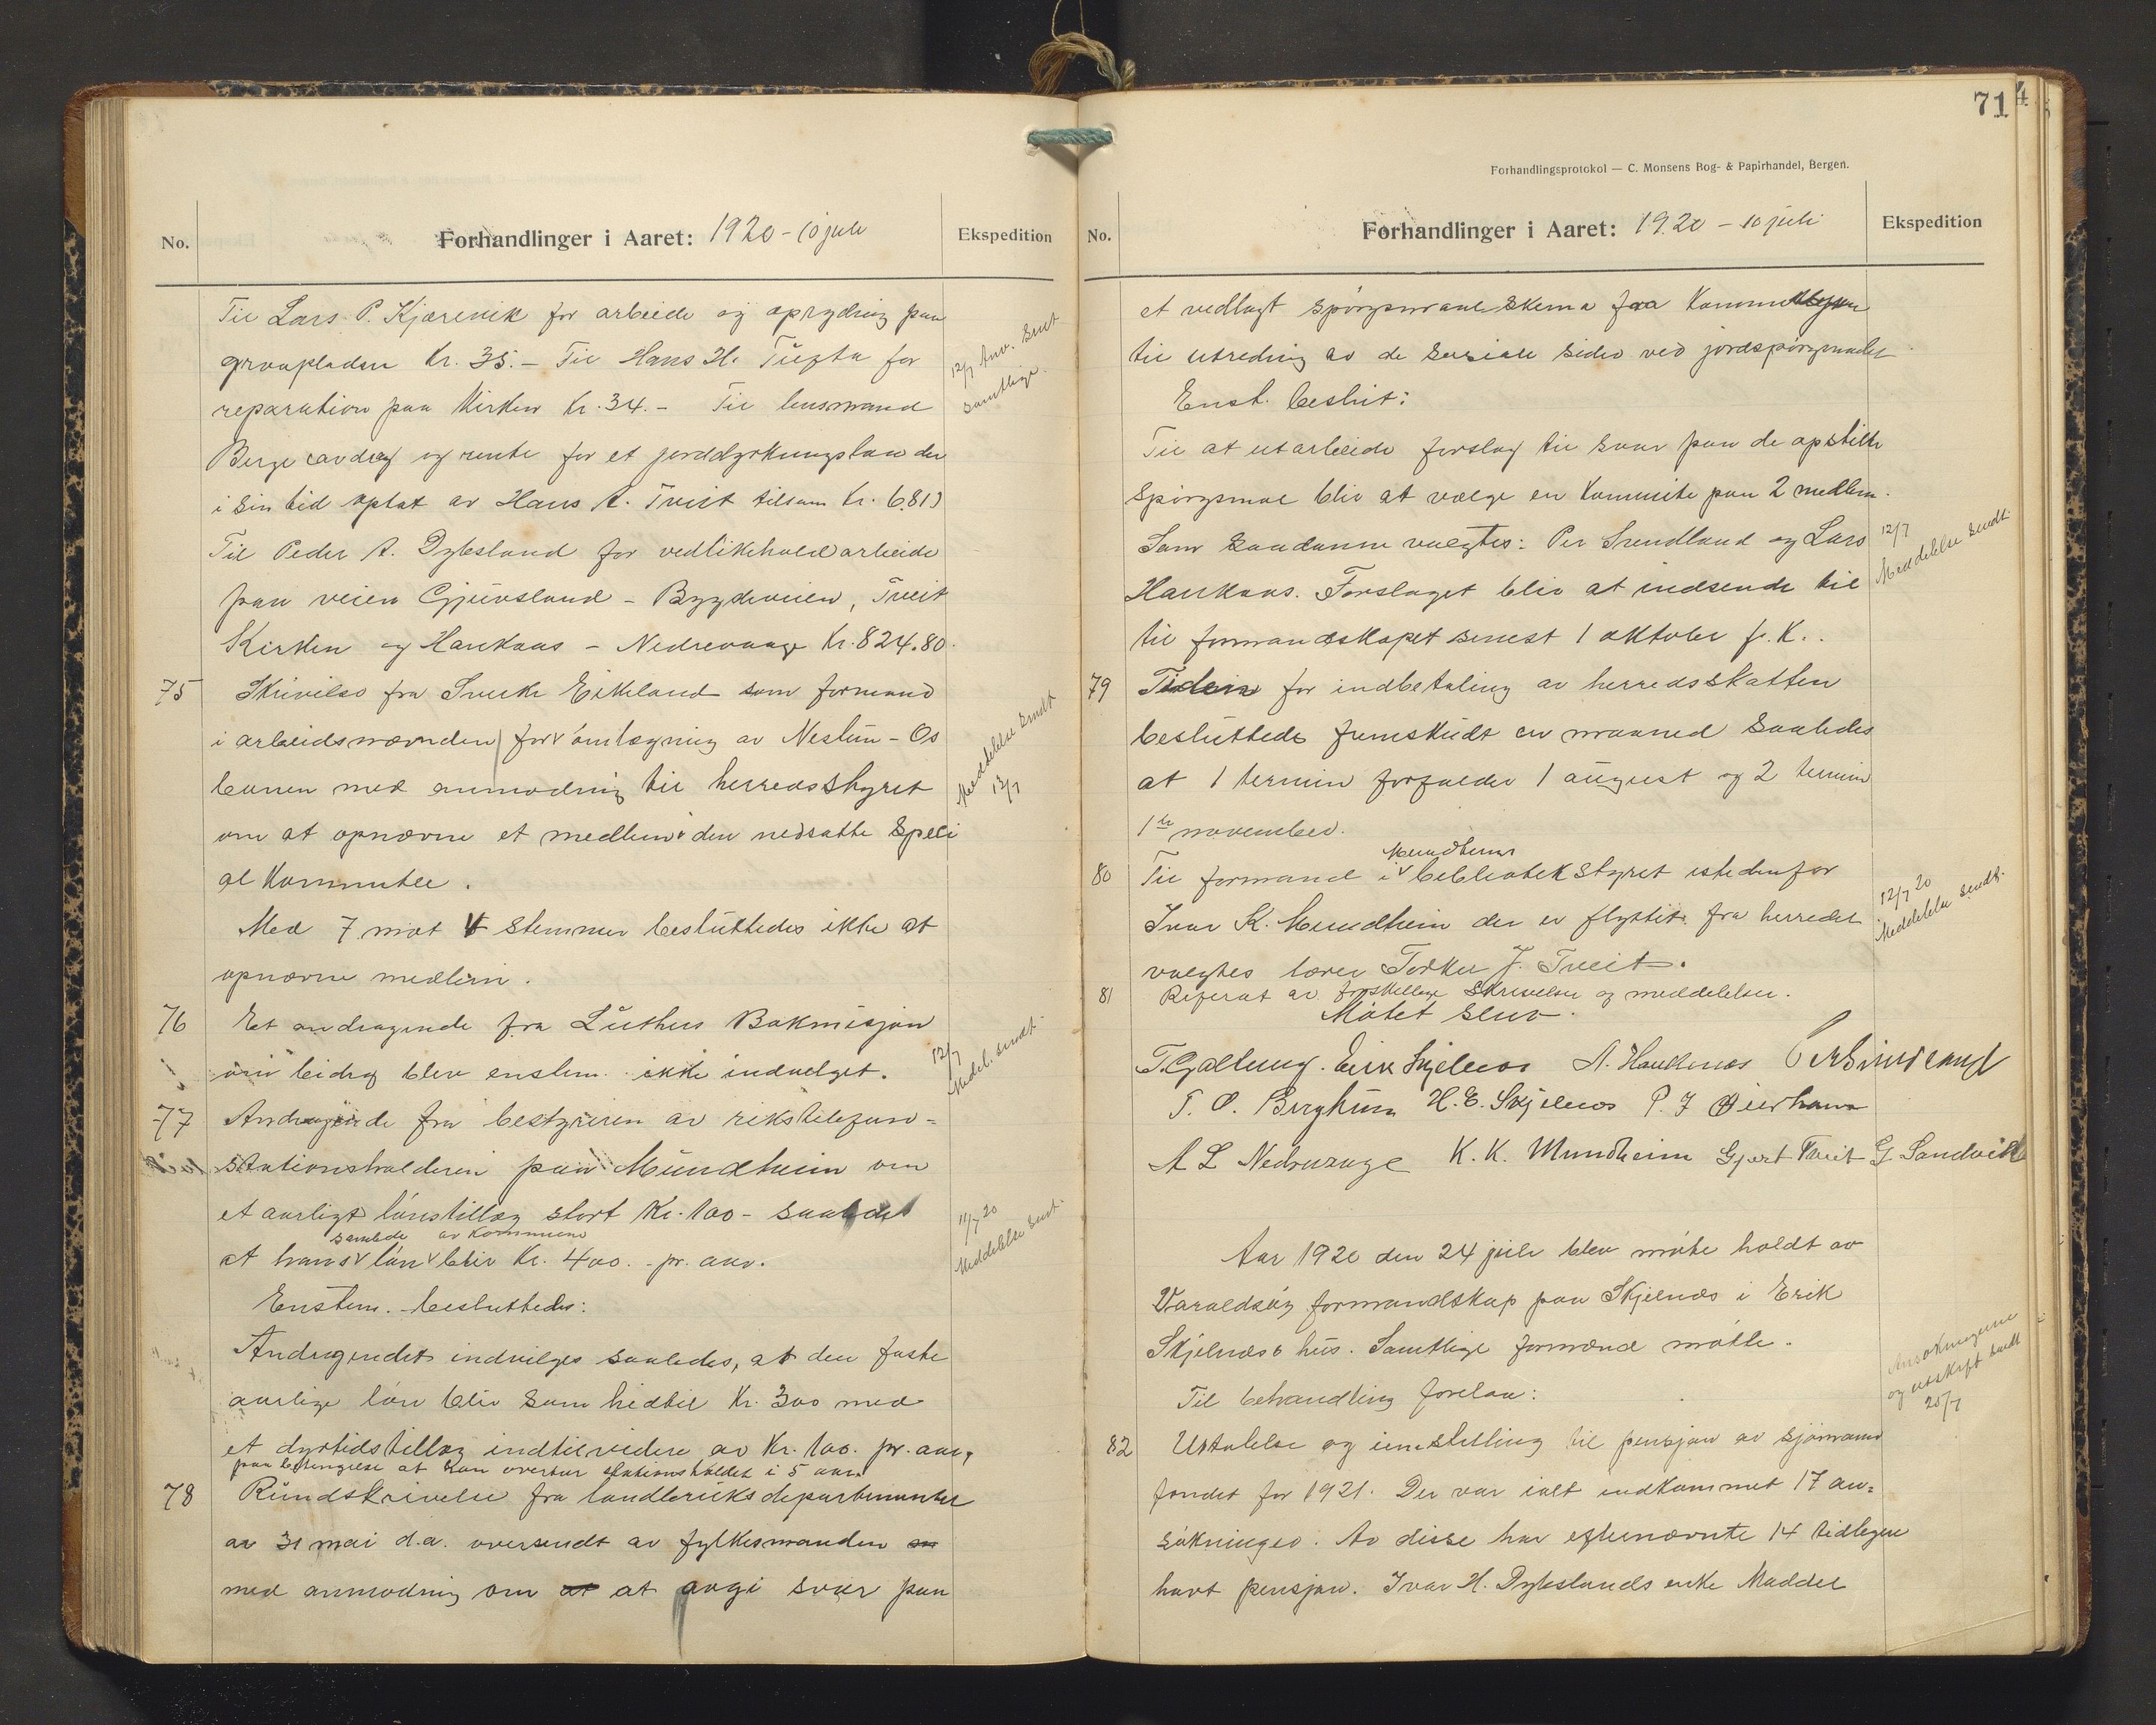 No.
Forhandlinger i Aaret: 1920 - 10 juli
Ekspedition
Til Lars P. Kjærevik for arbeide og oprydning paa
gravpladsen Kr. 35.- Til Hans H. Tufta for
reparation paa Kirken Kr. 34.- Til lensmand
12/7 Anv. sendt samtlige.
Berge avdrag og rente for et jorddyrkningslaan der
i sin tid optat av Hans A. Tveit tilsam Kr. 6.81)
Til Peder A. Dybesland for vedlikeholdarbeide
paa veien Gjuvsland - Bygdeveien, Tveit
Kirken og Haukaas - Nedrevaage Kr. 824.80.
75 Skrivelse fra Sverke Eikeland som formand
i arbeidsnævnden for omlægning av Nestun - Os
banen med anmodning til herredsstyret
om at opnævne et medlem i den nedsatte speci
al Kommitee.
Meddelelse sendt 13/7
Med 7 mot 4 stemmer besluttedes ikke at
opnævne medlem.
76 Et andragende fra Luthers Bokmisjon
om bidrag blev enstem. ikke indvilget.
12/7 Meddel. sendt.
77 Andragende fra bestyreren av rikstelefon-
stationsholderen paa Mundheim om
et aarligt lönstillæg stort Kr. 100 - saaledes
samlede av Kommunen
at hans lön blir Kr. 400.- pr. aar.
11/7 20 Meddelelse sendt.
Enstem. besluttedes:
Andragendet indvilges saaledes, at den faste
aarlige lön blir som hidtil Kr. 300 med
et dyrtidstillæg indtilvidere av Kr. 100. pr. aar,
paa betingelse at han overtar stationsholdet i 5 aar.
78 Rundskrivelse fra landbruksdepartementet
av 31 mai d.a. oversendt av fylkesmanden
med anmodning om at avgi svar paa
71
Forhandlingsprotokol — C. Monsens Bog- & Papirhandel, Bergen.
No.
Forhandlinger i Aaret: 1920 - 10 juli
Ekspedition
et vedlagt spörgsmaalskema fra
til utredning av de sociale sider ved jordspörgsmaalet
Enst. beslut:
Til at utarbeide forslag til svar paa de opstilte
spörgsmal blir at vælge en Kommite paa 2 medlem.
Som saadanne valgtes: Per Sundland og Lars
12/7 Meddelelse sendt.
Haukaas. Forslaget blir at indsende til
til formandskapet senest 1 oktober f. K.
79 Tiden for indbetaling av herredsskatten
besluttedes fremskudt en maaned saaledes
at 1 termin forfalder 1 august og 2 termin
1ste november.
Mundheim
80 Til formand i bibliotekstyret istedenfor
Ivar K. Mundheim der er flyttet fra herredet
valgtes lærer Torkel J. Tveit.
12/7 20 Meddelelse sendt.
81 Referat av forskjellige skrivelser og meddelelser.
Mötet slut.
T. Galtung. Eirik Skjelnes A. Haukenes
T. O. Berghum H. E. Skjelnes P. J.
A L Nedrevaage K. K. Mundheim Gjert Tveit G. Sandvik
Aar 1920 den 24 juli blev möte holdt av
Varaldsöy formandskap paa Skjelnes i Erik
Skjelnæs's hus. Samtlige formænd mötte.
Til behandling forelaa:
Ansökningerne og utskrift sendt 25/7
82 Uttalelse og innstilling til pensjon av sjömands
fondet for 1921. Der var ialt indkommet 17 an-
sökninger. Av disse har efternævnte 14 tidligere
havt pensjon. Ivar H. Dybeslands enke Maddel